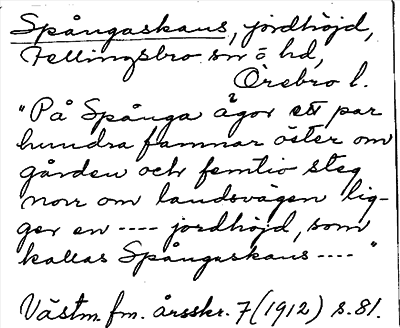 Spångaskans, jordhöjd,
Fellingsbro sn o hd,
Örebro l.
"På Spånga ägor ett par
hundra famnar öster om
gården och femtio steg
norr om landsvägen lig-
ger en ---- jordhöjd, som
kallas Spångaskans ---- "
Västm. fm. årsskr. 7 (1912) s. 81.